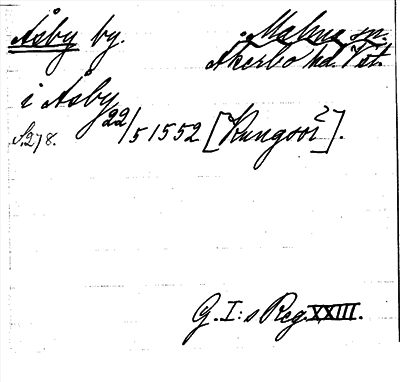 Åsby by. Malma sn.
Åkerbo hd. Vst.
i Åsby 22/5 1552 [Kungsör²].
S. 278.
G. I:s Reg. XXIII.